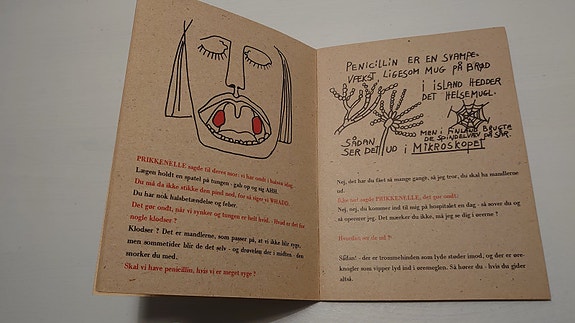 PRIKKENELLE sagde til deres mor: vi har ondt i halsen idag.
Lægen holdt en spatel på tungen - gab op og sig AHH.
Du må da ikke stikke den pind ned, for så siger vi
Du har nok halsbetændelse og feber.
Det gør ondt, når vi synker og tungen er helt hvid. - Hvad er det for
nogle klodser ?
Klodser ? Det er mandlerne, som passer på, at vi ikke blir syge,
men sommetider blir de det selv - og drøvelen der i midten - den
snorker du med.
Skal vi have penicillin, hvis vi er meget syge ?
PENICILLIN ER EN SVAMPE-
VÆKST LIGESOM MUG PÅ BRØD
I ISLAND HEDDER
DET HELSEMUGL.
MEN I FINLAND BRUGTE
DE SPINDELVÆV PÅ SÅR.
SÅDAN
SER DET UD I MIKROSKOPET
Nej, det har du fået så mange gange, så jeg tror, du skal ha mandlerne
ud.
PRIKKENELLE, det gør ondt:
Nej, nej, du kommer ind til mig på hospitalet en dag - så sover du og
så opererer jeg. Det mærker du ikke, må jeg se dig i ørerne ?
Hvordan ser de ud ?
Sådan! - der er trommehinden som lyde støder imod, og der er øre-
knogler som vipper lyd ind i øresneglen. Så hører du - hvis du gider
altså.